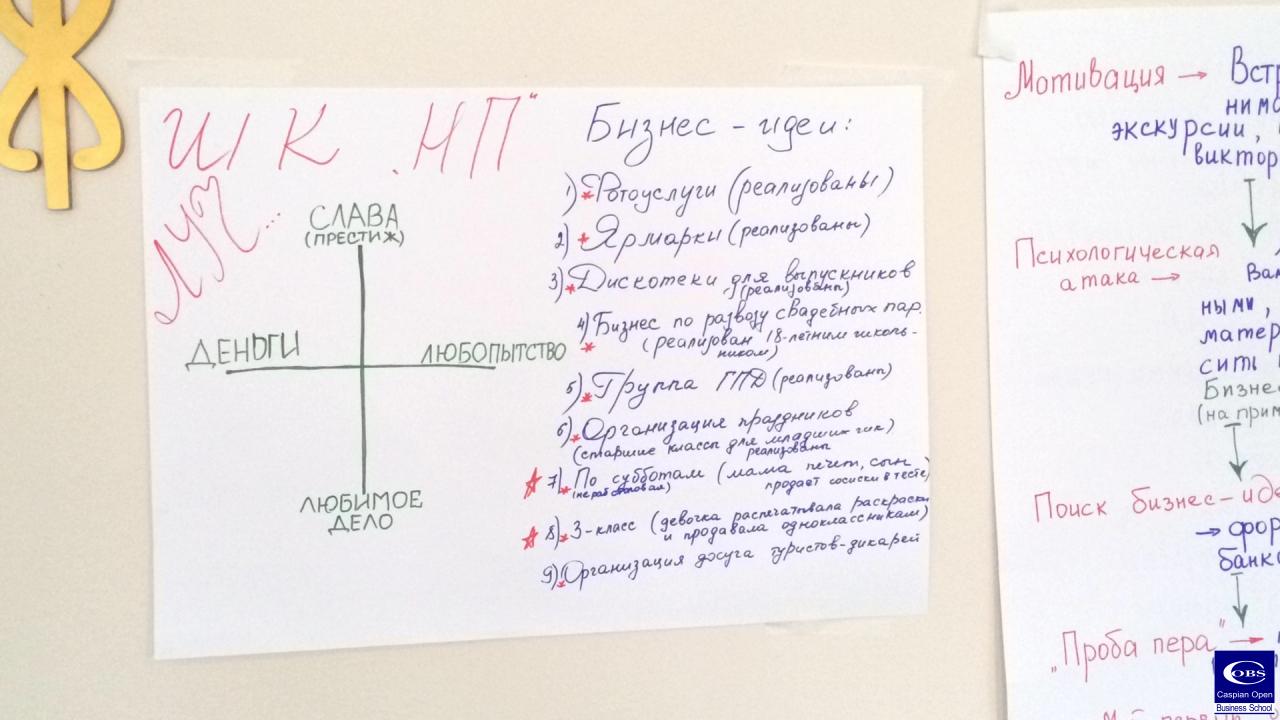 ШК „НП"
ЛУЧ...
СЛАВА
(ПРЕСТИЖ)
ДЕНЬГИ
ЛЮБОПЫТСТВО
ЛЮБИМОЕ
ДЕЛО
Бизнес - идеи:
1) * Фотоуслуги (реализованы)
2) * Ярмарки (реализованы)
3) * Дискотеки для выпускников
(реализованы)
4) Бизнес по развозу свадебных пар.
* (реализован 18-летним школь-
ником)
5) * Группа ГПД (реализованы)
6) * Организация праздников
(старшие классы для младших шк)
реализованы
7) * По субботам (мама печет, сын
(не раб столовая) продает сосиски в тесте)
8) * 3-класс (девочка распечатывала раскраски
и продавала одноклассникам)
9) * Организация досуга туристов-дикарей
Мотивация → Встр
нима
экскурсии,
виктор
Психологическая
атака →
ными,
матер
сить
Бизне
(на прим
Поиск бизнес-иде
→ фор
банк
„Проба пера" →
OBS
Caspian Open
Business School